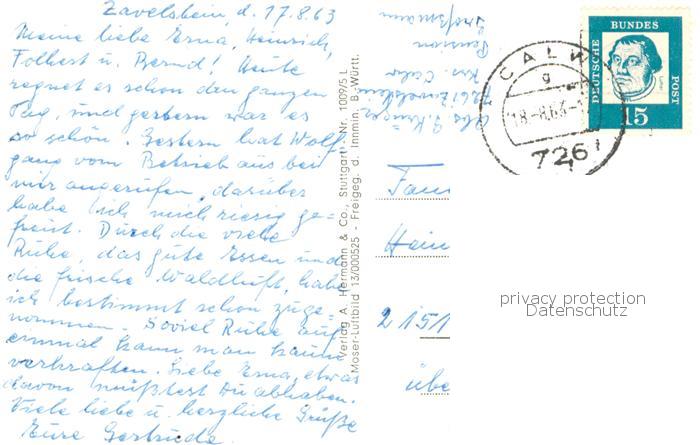 Zavelstein, d. 17.8.63
Meine liebe Erna, Heinrich,
Folkert u. Bernd! Heute
regnet es schon den ganzen
Tag, und gestern war es
so schön. Gestern hat Wolf
gang vom Betrieb aus bei
mir angerufen, darüber
habe ich mich riesig ge-
freut. Durch die viele
Ruhe, das gute Essen und
die frische Waldluft, habe
ich bestimmt schon zuge-
nommen. Soviel Ruhe auf
einmal kann man kaum
verkraften. Liebe Erna, etwas
davon müßtest Du abhaben.
Viele liebe u. herzliche Grüße
Eure Gertrude.
Verlag A. Hermann & Co., Stuttgart · Nr. 1009/5 L
Moser-Luftbild 13/000525 - Freigeg. d. Innmin. B.-Württ.
7261 Zavelstein
Krs. Calw
Pension
CALW
g
18.-8.63-1
7261
DEUTSCHE
BUNDES
POST
15
Fam
Hein
2151
übe
privacy protection
Datenschutz